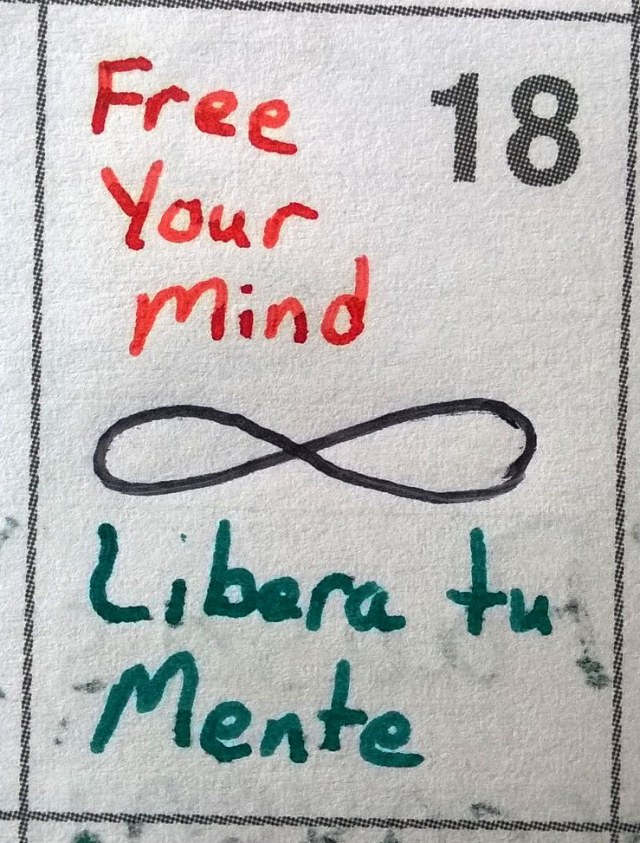 Free 18
Your
Mind
Libera tu
Mente